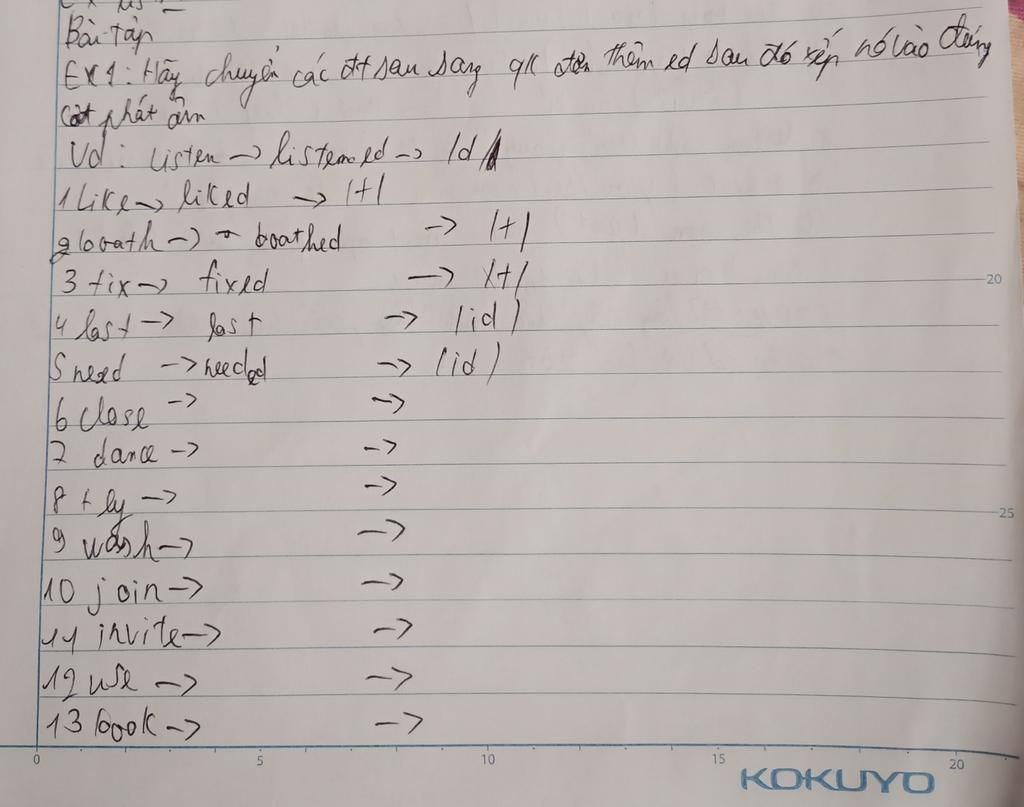 Bài tập
EX1: Hãy chuyển các đt sau sang qk đơn thêm ed sau đó xếp nó vào đúng
cột phát âm
Vd: Listen → listened → /d/
1 Like → liked → /t/
2 → boathed → /t/
3 fix → fixed → /t/
4 last → last → /id/
5 need → needed → /id/
6 close → →
7 dance → →
8 fly → →
9 wash → →
10 join → →
11 invite → →
12 use → →
13 book → →
0 5 10 15 20
20
25
KOKUYO